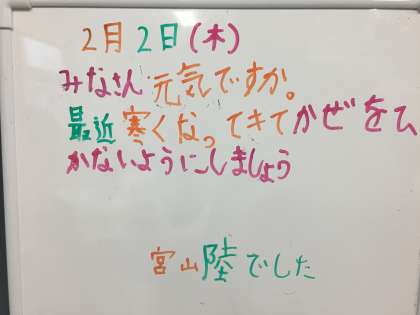 2月2日(木)
みなさん元気ですか。
最近寒くなってきてかぜをひ
かないようにしましょう
宮山陸でした